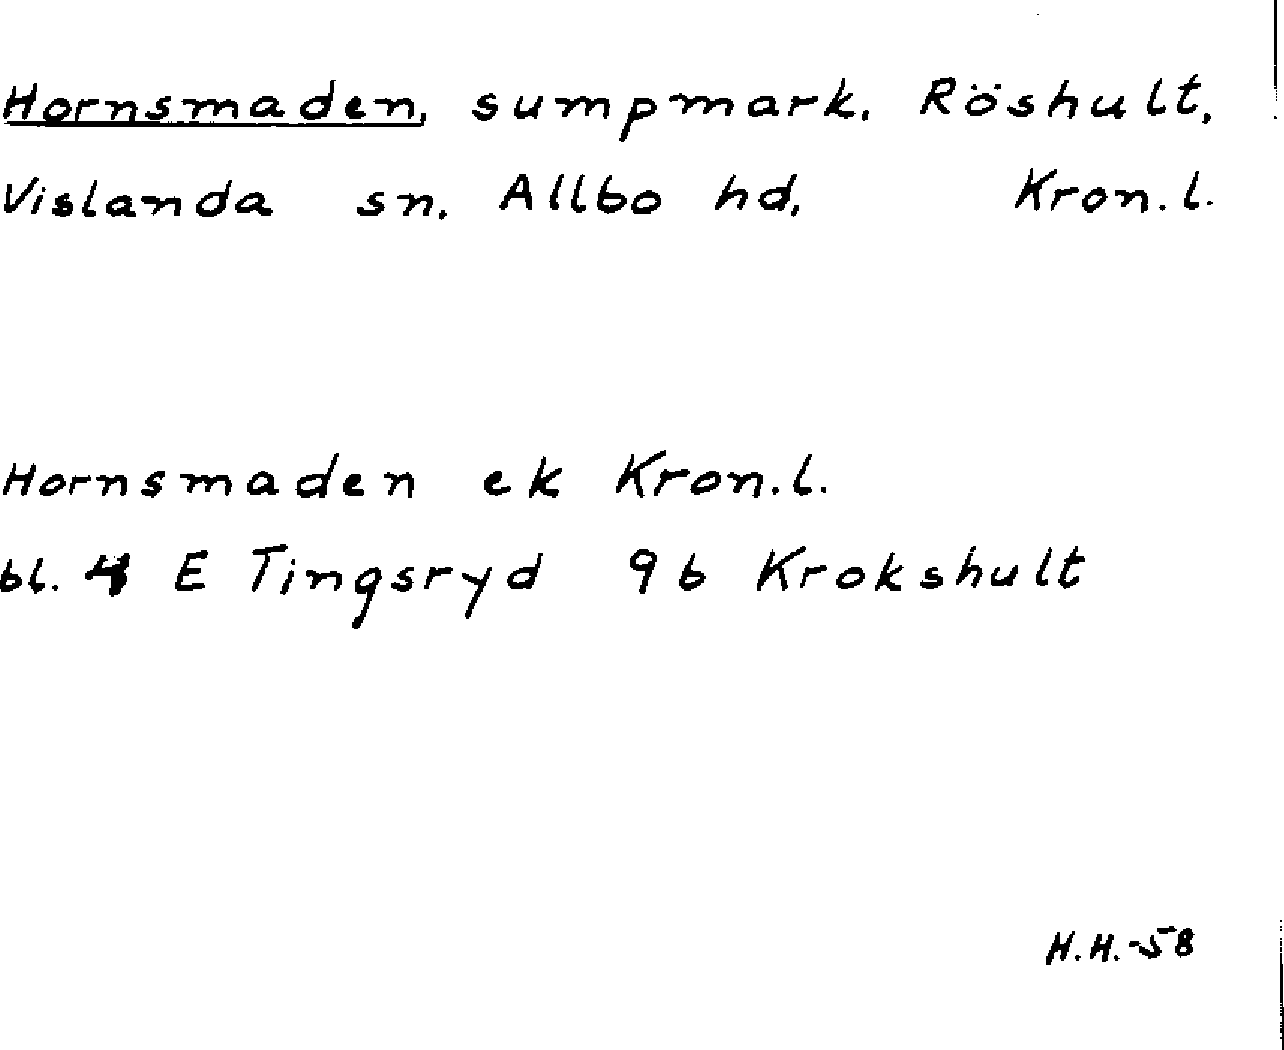 Hornsmaden, sumpmark. Röshult,
Vislanda sn. Allbo hd, Kron.l.
Hornsmaden ek Kron.l.
bl. 4 E Tingsryd 9b Krokshult
H.H.-58